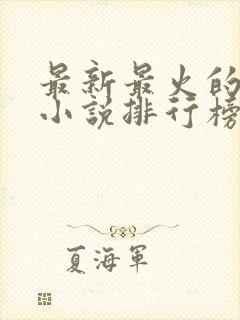 最新最火的
小說排行榜
夏海軍